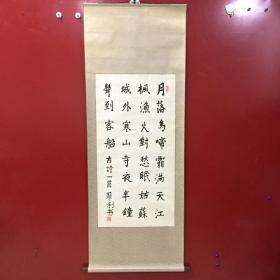 月落烏啼霜滿天江
楓漁火對愁眠姑蘇
城外寒山寺夜半鐘
聲到客船 古诗一首